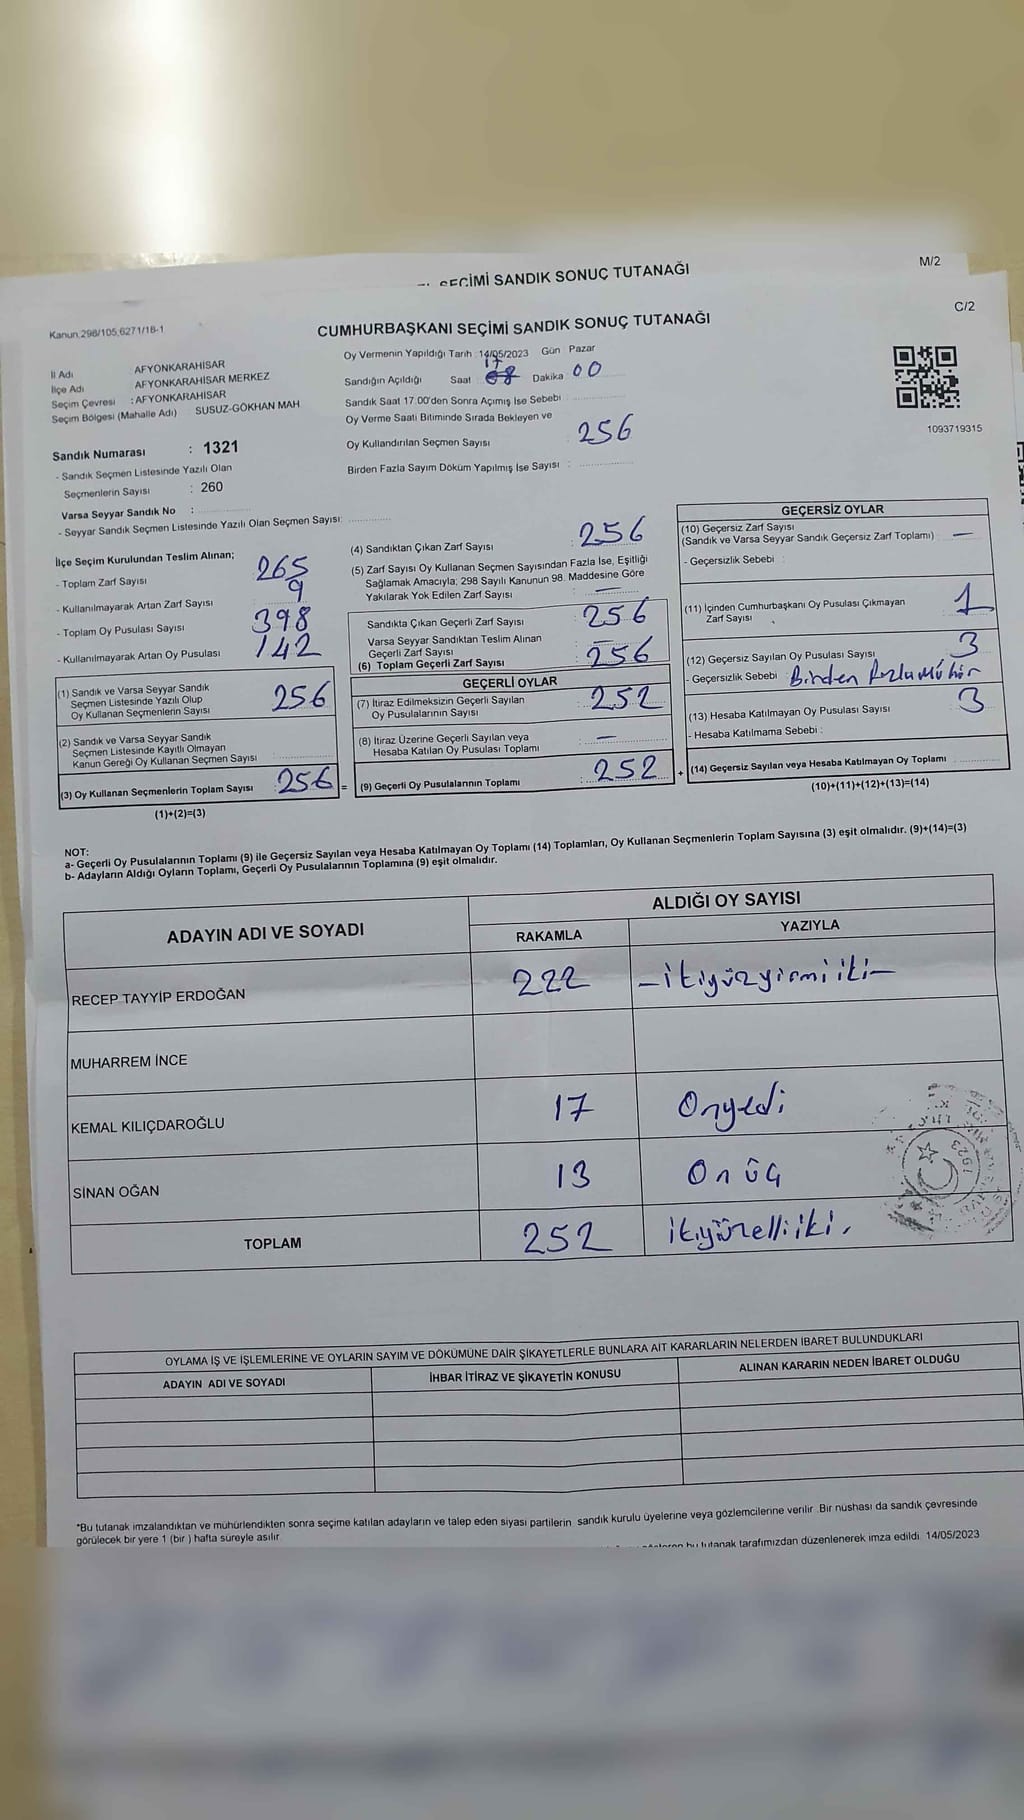 SEÇİMİ SANDIK SONUÇ TUTANAĞI
M/2
Kanun.298/105,6271/18-1
CUMHURBAŞKANI SEÇİMİ SANDIK SONUÇ TUTANAĞI
C/2
İl Adı AFYONKARAHİSAR
İlçe Adı AFYONKARAHİSAR MERKEZ
Seçim Çevresi : AFYONKARAHİSAR
Seçim Bölgesi (Mahalle Adı) SUSUZ-GÖKHAN MAH
Sandık Numarası : 1321
- Sandık Seçmen Listesinde Yazılı Olan
Seçmenlerin Sayısı : 260
Varsa Seyyar Sandık No :
- Seyyar Sandık Seçmen Listesinde Yazılı Olan Seçmen Sayısı:
Oy Vermenin Yapıldığı Tarih : 14/05/2023 Gün Pazar
Sandığın Açıldığı Saat : 17 08 Dakika : 00
Sandık Saat 17.00'den Sonra Açımış İse Sebebi :
Oy Verme Saati Bitiminde Sırada Bekleyen ve
Oy Kullandırılan Seçmen Sayısı : 256
Birden Fazla Sayım Döküm Yapılmış İse Sayısı :
1093719315
İlçe Seçim Kurulundan Teslim Alınan;
- Toplam Zarf Sayısı 265
- Kullanılmayarak Artan Zarf Sayısı 9
- Toplam Oy Pusulası Sayısı 398
- Kullanılmayarak Artan Oy Pusulası 142
(1) Sandık ve Varsa Seyyar Sandık
Seçmen Listesinde Yazılı Olup
Oy Kullanan Seçmenlerin Sayısı 256
(2) Sandık ve Varsa Seyyar Sandık
Seçmen Listesinde Kayıtlı Olmayan
Kanun Gereği Oy Kullanan Seçmen Sayısı
(3) Oy Kullanan Seçmenlerin Toplam Sayısı : 256 =
(1)+(2)=(3)
(4) Sandıktan Çıkan Zarf Sayısı : 256
(5) Zarf Sayısı Oy Kullanan Seçmen Sayısından Fazla İse, Eşitliği
Sağlamak Amacıyla; 298 Sayılı Kanunun 98. Maddesine Göre
Yakılarak Yok Edilen Zarf Sayısı : —
Sandıkta Çıkan Geçerli Zarf Sayısı : 256
Varsa Seyyar Sandıktan Teslim Alınan
Geçerli Zarf Sayısı : —
(6) Toplam Geçerli Zarf Sayısı : 256
GEÇERLİ OYLAR
(7) İtiraz Edilmeksizin Geçerli Sayılan
Oy Pusulalarının Sayısı : 252
(8) İtiraz Üzerine Geçerli Sayılan veya
Hesaba Katılan Oy Pusulası Toplamı : —
(9) Geçerli Oy Pusulalarının Toplamı : 252 +
GEÇERSİZ OYLAR
(10) Geçersiz Zarf Sayısı
(Sandık ve Varsa Seyyar Sandık Geçersiz Zarf Toplamı) : —
- Geçersizlik Sebebi :
(11) İçinden Cumhurbaşkanı Oy Pusulası Çıkmayan
Zarf Sayısı 1
(12) Geçersiz Sayılan Oy Pusulası Sayısı : 3
- Geçersizlik Sebebi : Birden Fazla Mühür
(13) Hesaba Katılmayan Oy Pusulası Sayısı : 3
- Hesaba Katılmama Sebebi :
(14) Geçersiz Sayılan veya Hesaba Katılmayan Oy Toplamı :
(10)+(11)+(12)+(13)=(14)
NOT:
a- Geçerli Oy Pusulalarının Toplamı (9) ile Geçersiz Sayılan veya Hesaba Katılmayan Oy Toplamı (14) Toplamları, Oy Kullanan Seçmenlerin Toplam Sayısına (3) eşit olmalıdır. (9)+(14)=(3)
b- Adayların Aldığı Oyların Toplamı, Geçerli Oy Pusulalarının Toplamına (9) eşit olmalıdır.
ADAYIN ADI VE SOYADI
ALDIĞI OY SAYISI
RAKAMLA YAZIYLA
RECEP TAYYİP ERDOĞAN 222 – ikiyüzyirmiiki –
MUHARREM İNCE
KEMAL KILIÇDAROĞLU 17 Onyedi
SİNAN OĞAN 13 Onüç
TOPLAM 252 ikiyüzelliiki.
1923
OYLAMA İŞ VE İŞLEMLERİNE VE OYLARIN SAYIM VE DÖKÜMÜNE DAİR ŞİKAYETLERLE BUNLARA AİT KARARLARIN NELERDEN İBARET BULUNDUKLARI
ADAYIN ADI VE SOYADI İHBAR İTİRAZ VE ŞİKAYETİN KONUSU ALINAN KARARIN NEDEN İBARET OLDUĞU
*Bu tutanak imzalandıktan ve mühürlendikten sonra seçime katılan adayların ve talep eden siyasi partilerin sandık kurulu üyelerine veya gözlemcilerine verilir. Bir nüshası da sandık çevresinde
görülecek bir yere 1 (bir ) hafta süreyle asılır.
bu tutanak tarafımızdan düzenlenerek imza edildi. 14/05/2023